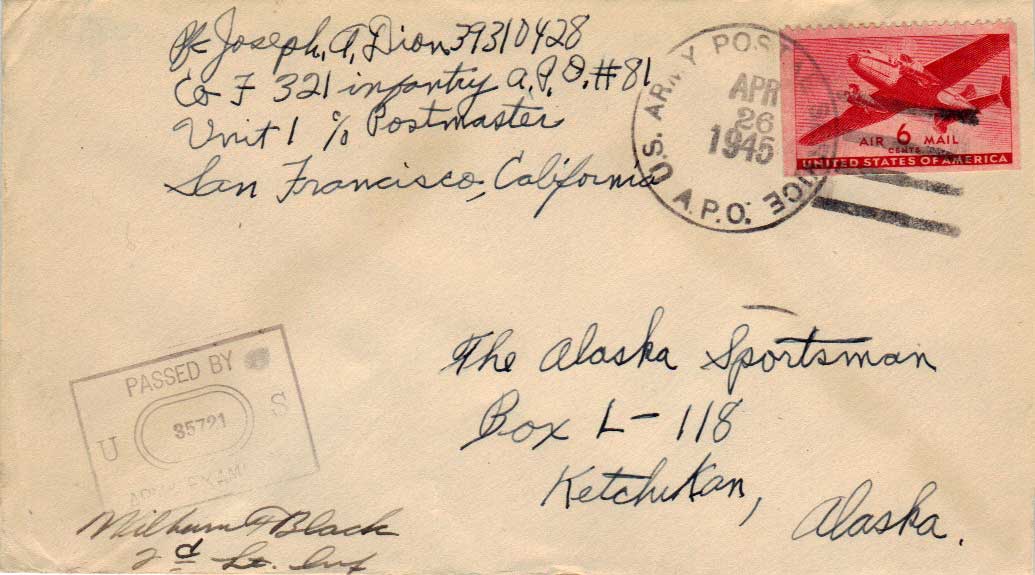 Pfc Joseph. A. Dion 39310428
Co F 321 infantry A.P.O. #81
Unit 1 % Postmaster
San Francisco, California
U.S. ARMY POSTAL SERVICE
APR
26
1945
A.P.O.
AIR 6 MAIL
CENTS
UNITED STATES OF AMERICA
The Alaska Sportsman
Box L-118
Ketchikan,
Alaska.
PASSED BY
U 35721 S
ARMY EXAM
Milburn F Black
2d Lt. Inf